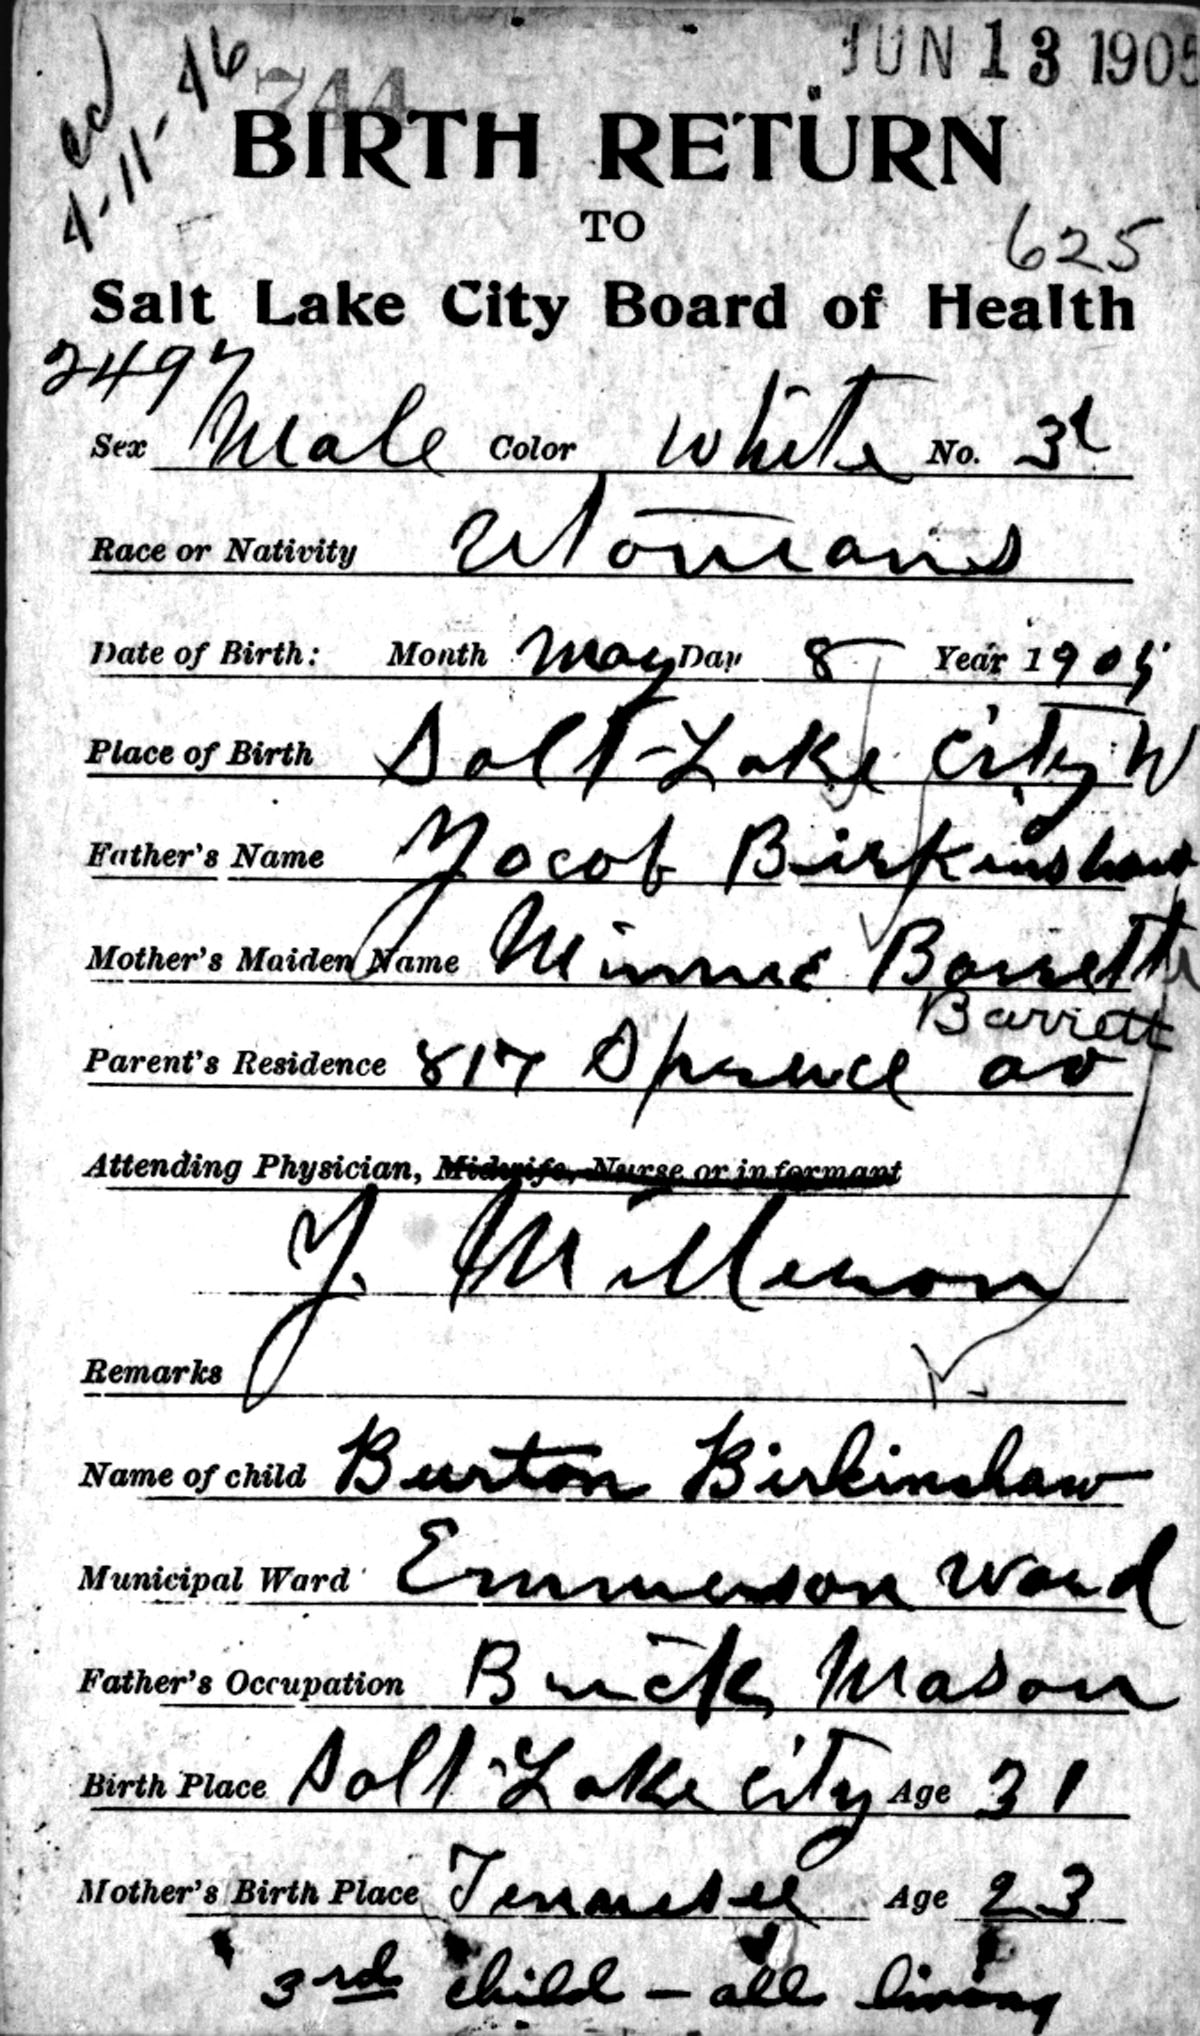 JUN 13 1905
ed
4-11-46
744
BIRTH RETURN
TO
625
Salt Lake City Board of Health
2497
Sex Male Color White No. 3d
Race or Nativity Utonians
Date of Birth: Month May Day 8 Year 1905
Place of Birth Salt Lake City W
Father's Name Jacob Birkinshaw
Mother's Maiden Name Minnie Barrett
Barrett
Parent's Residence 817 av
Attending Physician, Midwife, Nurse or informant
J.
Remarks
Name of child Burton Birkinshaw
Municipal Ward Emmerson Ward
Father's Occupation Brick Mason
Birth Place Salt Lake City Age 31
Mother's Birth Place Tennessee Age 23
3rd child - all living